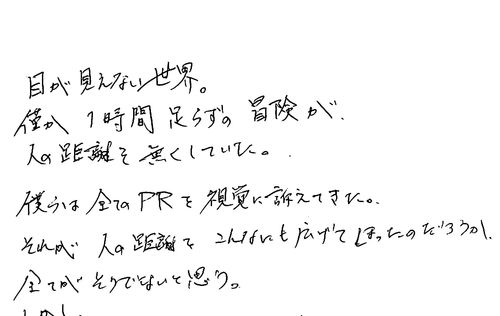 目が見えない世界。
僅か1時間足らずの冒険が、
人の距離を無くしていた。
僕らは全てのPRを視覚に訴えてきた。
それが人の距離をこんなにも広げてしまったのだろうか、
全てがそうでないと思う。
しかし